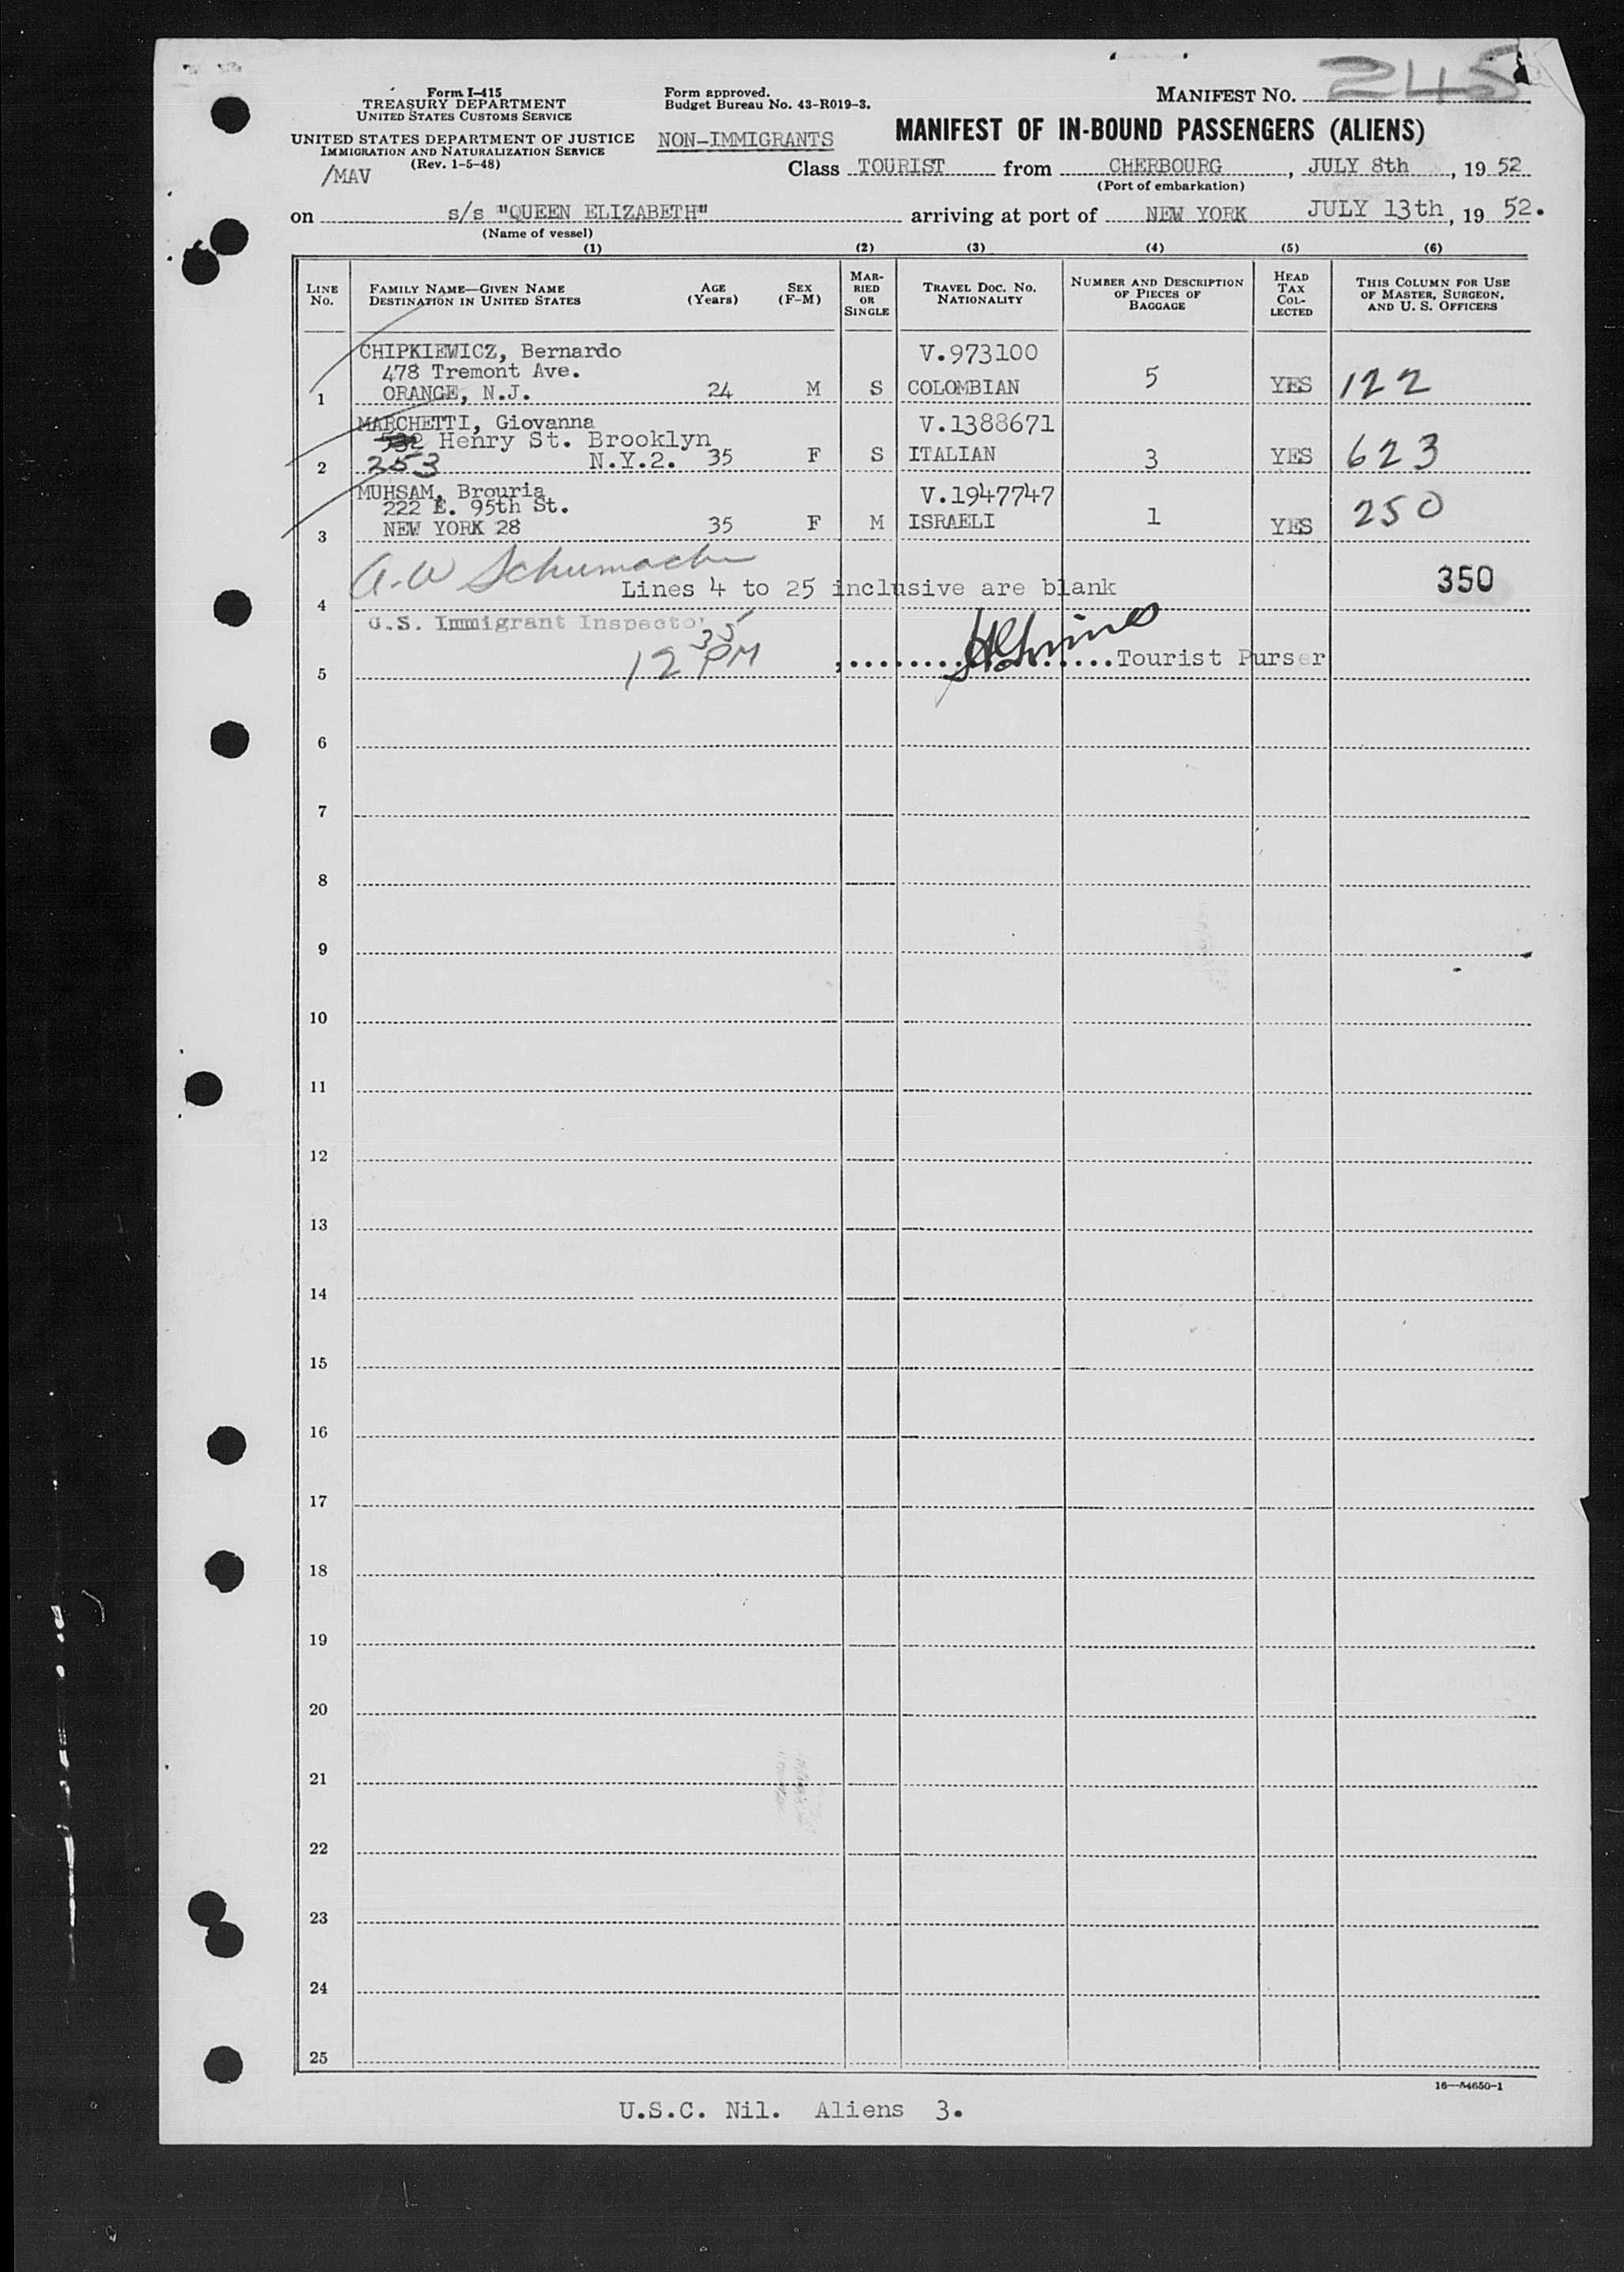 Form I-415
TREASURY DEPARTMENT
UNITED STATES CUSTOMS SERVICE
UNITED STATES DEPARTMENT OF JUSTICE
IMMIGRATION AND NATURALIZATION SERVICE
(Rev. 1-5-48)
/MAV
Form approved.
Budget Bureau No. 43-R019-3.
NON-IMMIGRANTS
MANIFEST NO. 245
MANIFEST OF IN-BOUND PASSENGERS (ALIENS)
Class TOURIST from CHERBOURG, JULY 8th, 19 52
(Port of embarkation)
on s/s "QUEEN ELIZABETH" arriving at port of NEW YORK JULY 13th, 19 52.
(Name of vessel)
(1) (2) (3) (4) (5) (6)
LINE NO. FAMILY NAME—GIVEN NAME DESTINATION IN UNITED STATES AGE (Years) SEX (F-M) MARRIED OR SINGLE TRAVEL DOC. NO. NATIONALITY NUMBER AND DESCRIPTION OF PIECES OF BAGGAGE HEAD TAX COLLECTED THIS COLUMN FOR USE OF MASTER, SURGEON, AND U. S. OFFICERS
CHIPKIEWICZ, Bernardo V.973100
478 Tremont Ave.
1 ORANGE, N.J. 24 M S COLOMBIAN 5 YES 122
MARCHETTI, Giovanna V.1388671
532 Henry St. Brooklyn
2 253 N.Y.2. 35 F S ITALIAN 3 YES 623
MUHSAM, Brouria V.1947747
222 E. 95th St.
3 NEW YORK 28 35 F M ISRAELI 1 YES 250
A.W Schumacher
4 Lines 4 to 25 inclusive are blank 350
U.S. Immigrant Inspector
5 12 35 PM Tourist Purser
6
7
8
9
10
11
12
13
14
15
16
17
18
19
20
21
22
23
24
25
16—54650-1
U.S.C. Nil. Aliens 3.